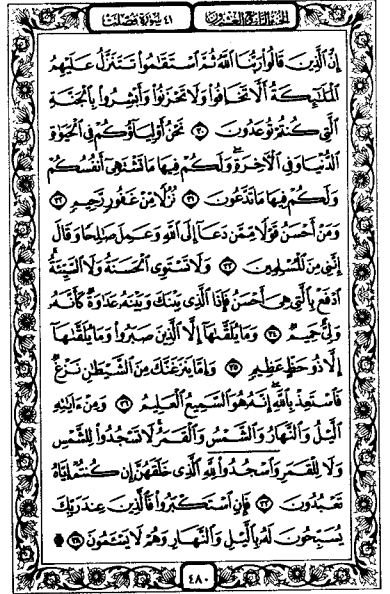 الجزء الرابع والعشرون
٤١ سورة فصلت
إِنَّ ٱلَّذِينَ قَالُوا۟ رَبُّنَا ٱللَّهُ ثُمَّ ٱسْتَقَٰمُوا۟ تَتَنَزَّلُ عَلَيْهِمُ
ٱلْمَلَٰٓئِكَةُ أَلَّا تَخَافُوا۟ وَلَا تَحْزَنُوا۟ وَأَبْشِرُوا۟ بِٱلْجَنَّةِ
ٱلَّتِى كُنتُمْ تُوعَدُونَ ٣٠ نَحْنُ أَوْلِيَآؤُكُمْ فِى ٱلْحَيَوٰةِ
ٱلدُّنْيَا وَفِى ٱلْءَاخِرَةِ وَلَكُمْ فِيهَا مَا تَشْتَهِىٓ أَنفُسُكُمْ
وَلَكُمْ فِيهَا مَا تَدَّعُونَ ٣١ نُزُلًا مِّنْ غَفُورٍ رَّحِيمٍ ٣٢
وَمَنْ أَحْسَنُ قَوْلًا مِّمَّن دَعَآ إِلَى ٱللَّهِ وَعَمِلَ صَٰلِحًا وَقَالَ
إِنَّنِى مِنَ ٱلْمُسْلِمِينَ ٣٣ وَلَا تَسْتَوِى ٱلْحَسَنَةُ وَلَا ٱلسَّيِّئَةُ
ٱدْفَعْ بِٱلَّتِى هِىَ أَحْسَنُ فَإِذَا ٱلَّذِى بَيْنَكَ وَبَيْنَهُۥ عَدَٰوَةٌ كَأَنَّهُۥ
وَلِىٌّ حَمِيمٌ ٣٤ وَمَا يُلَقَّىٰهَآ إِلَّا ٱلَّذِينَ صَبَرُوا۟ وَمَا يُلَقَّىٰهَآ
إِلَّا ذُو حَظٍّ عَظِيمٍ ٣٥ وَإِمَّا يَنزَغَنَّكَ مِنَ ٱلشَّيْطَٰنِ نَزْغٌ
فَٱسْتَعِذْ بِٱللَّهِ إِنَّهُۥ هُوَ ٱلسَّمِيعُ ٱلْعَلِيمُ ٣٦ وَمِنْ ءَايَٰتِهِ
ٱلَّيْلُ وَٱلنَّهَارُ وَٱلشَّمْسُ وَٱلْقَمَرُ لَا تَسْجُدُوا۟ لِلشَّمْسِ
وَلَا لِلْقَمَرِ وَٱسْجُدُوا۟ لِلَّهِ ٱلَّذِى خَلَقَهُنَّ إِن كُنتُمْ إِيَّاهُ
تَعْبُدُونَ ٣٧ فَإِنِ ٱسْتَكْبَرُوا۟ فَٱلَّذِينَ عِندَ رَبِّكَ
يُسَبِّحُونَ لَهُۥ بِٱلَّيْلِ وَٱلنَّهَارِ وَهُمْ لَا يَسْـَٔمُونَ ۩ ٣٨
٤٨٠